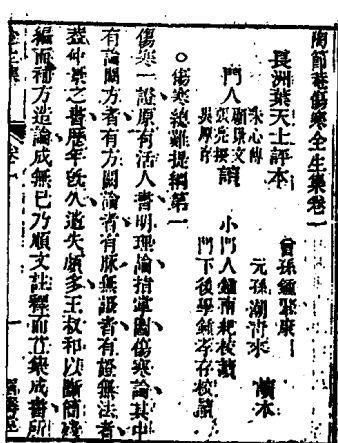 陶節菴傷寒全生集卷一
長洲葉天士評本
朱心傳
顧景文
門人張亮揆讀
吳厚存
曾孫鍾
元孫湖
小門人鍾南耙校讀
門下後學鍾孝存校讀
○傷寒總難提綱第一
傷寒一證原有活人書明理論指掌圖傷寒論其中
有論闕方者有方闕論者有脉無証者有證無法者
葢仲景之書歷年旣久遺失頗多王叔和以斷簡殘
編而補方造論成無已乃順文註釋而並集成書所